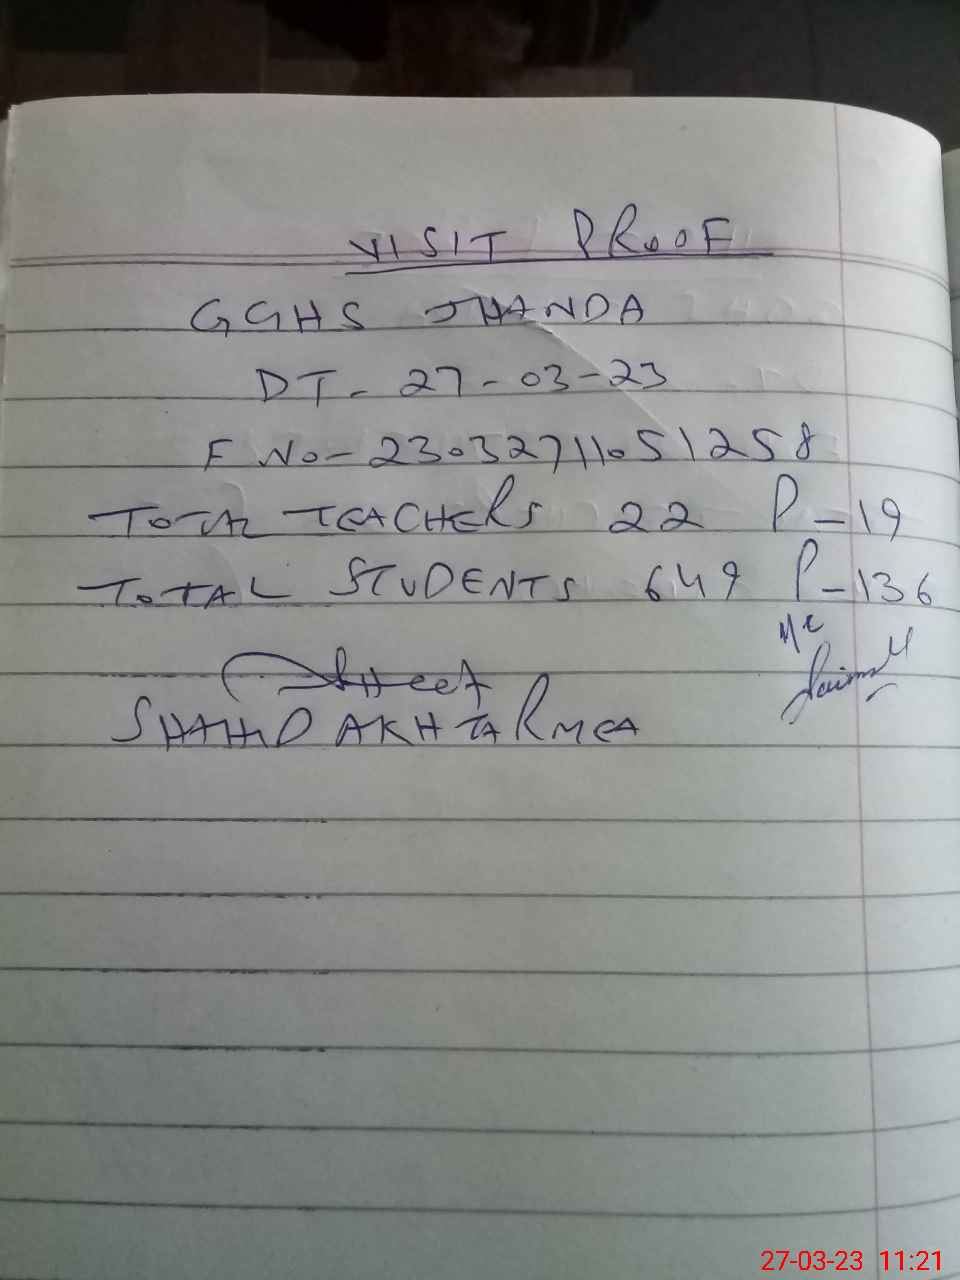 VISIT PROOF
GGHS JHANDA
DT- 27-03-23
F No- 23032711051258
TOTAL TEACHERS 22 P-19
TOTAL STUDENTS 649 P-136
SHAHID AKHTAR MEA
27-03-23 11:21